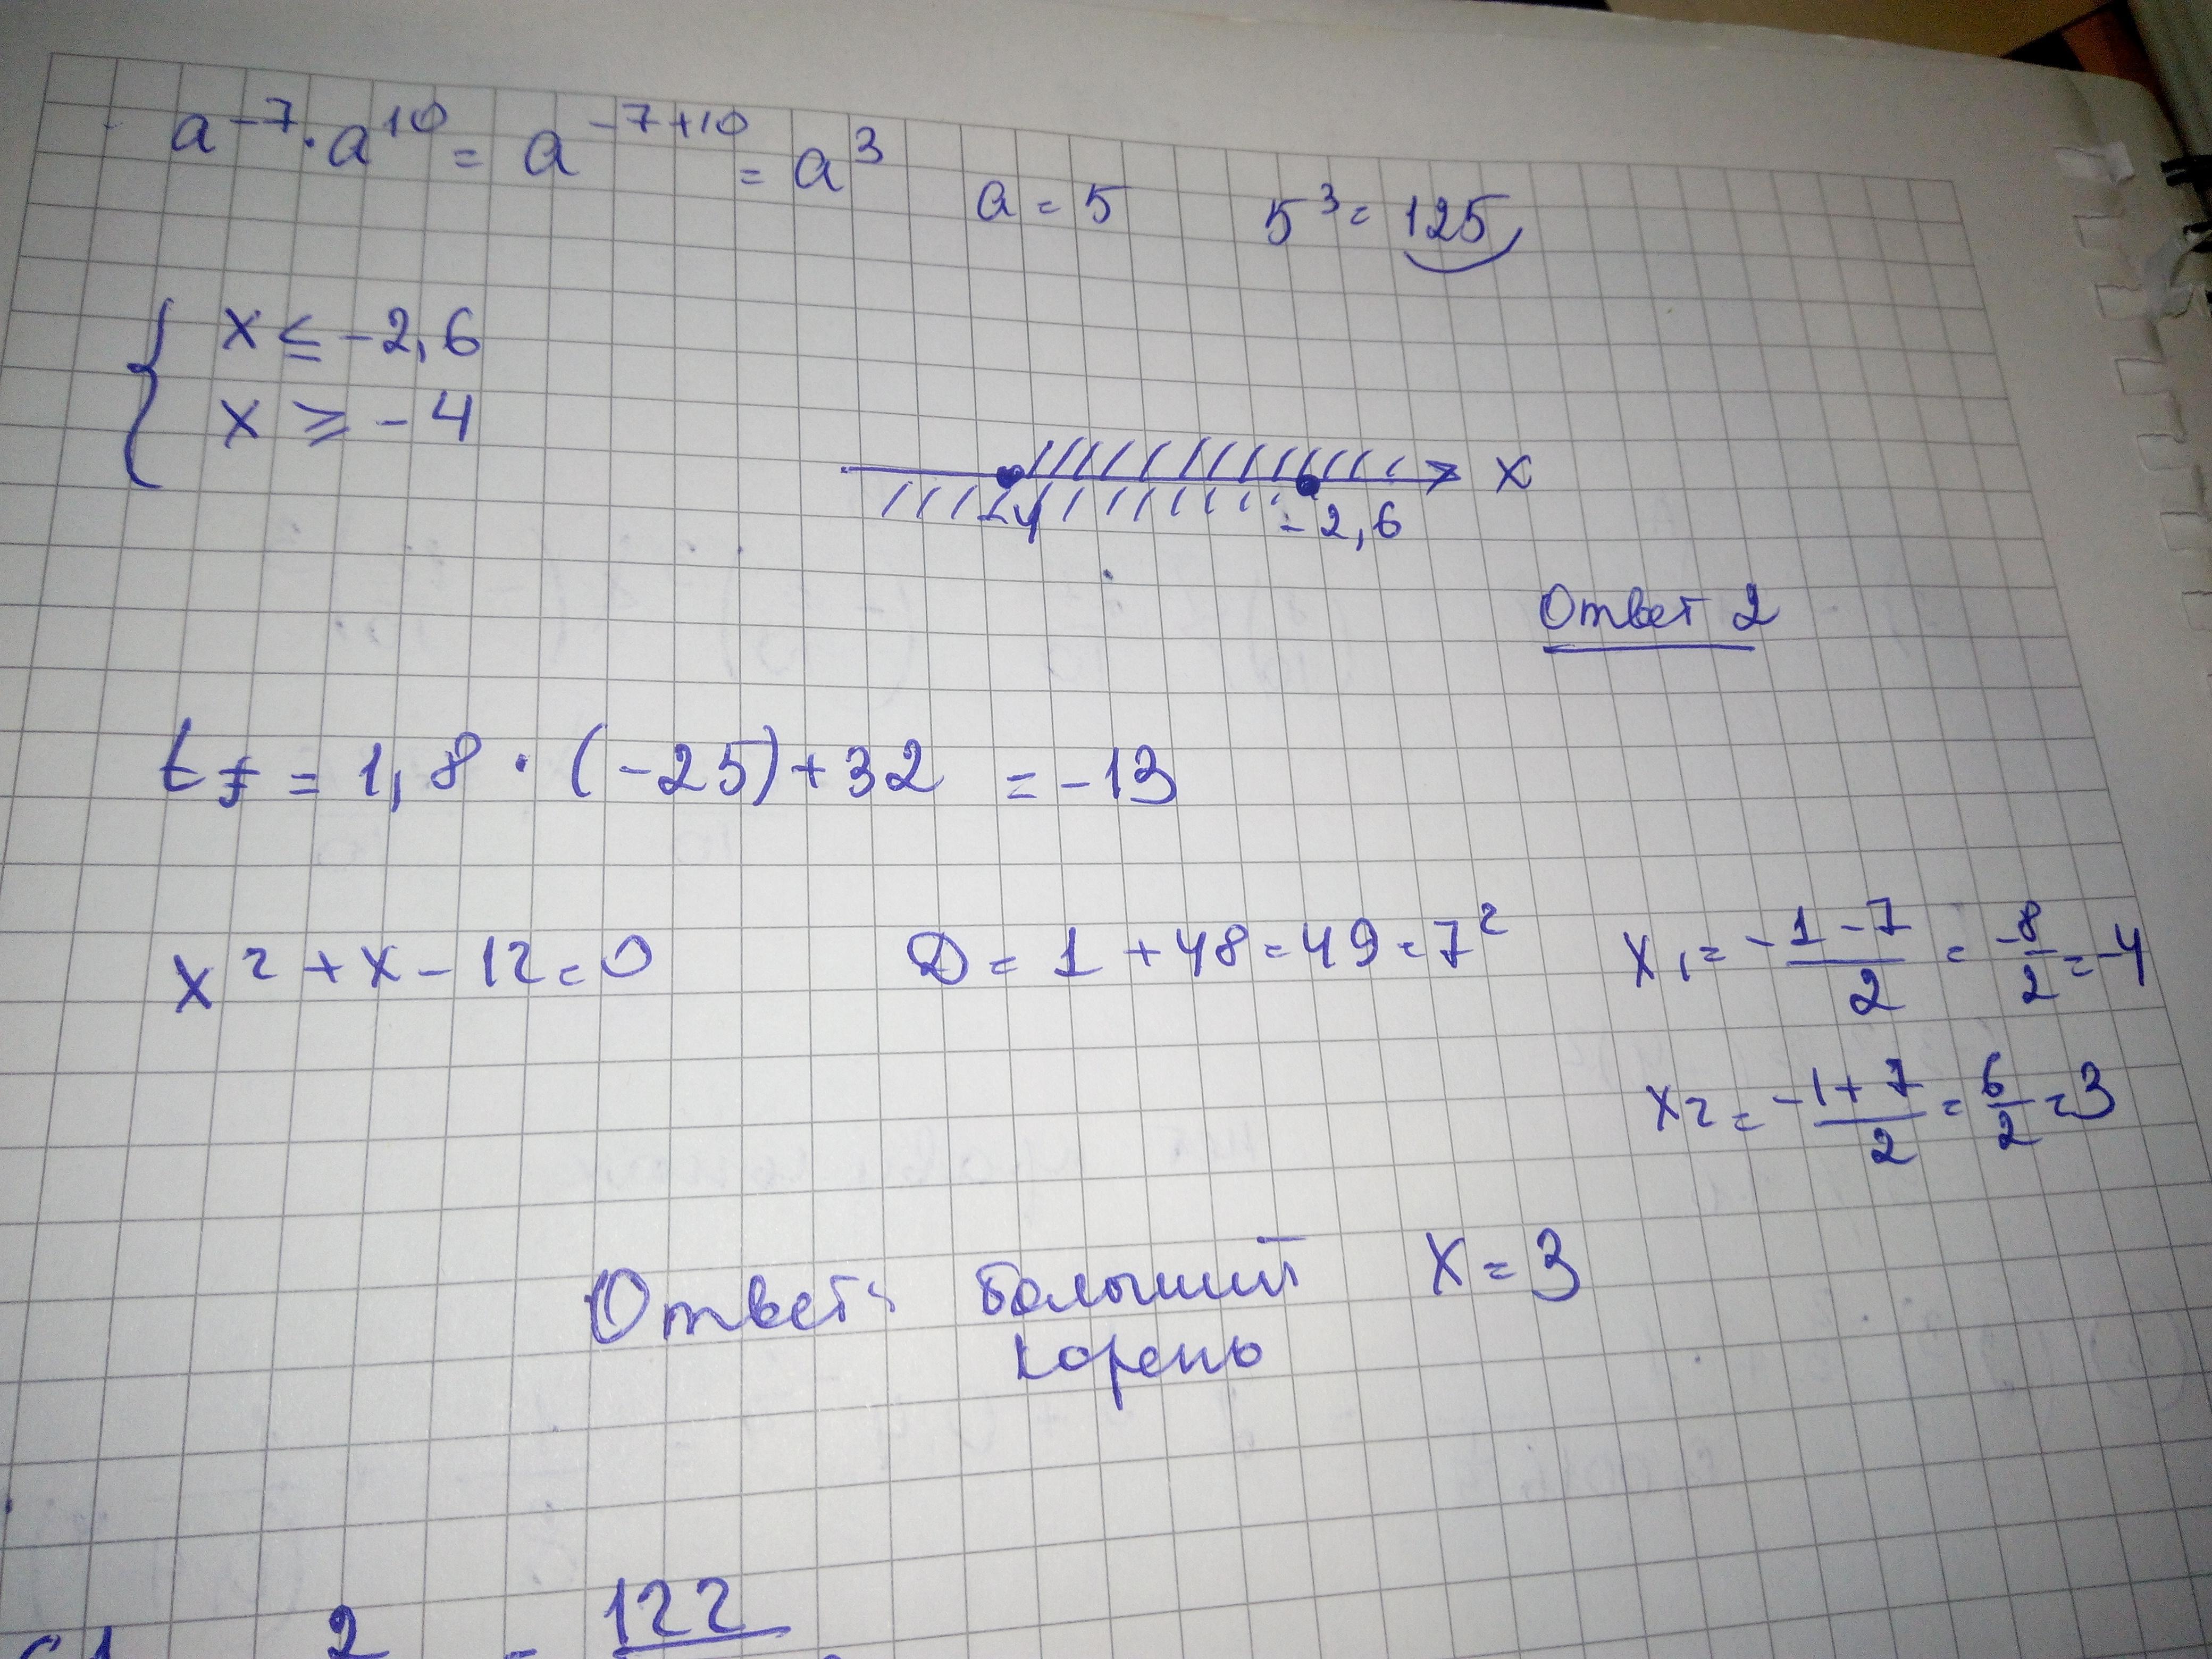 a⁻⁷ · a¹⁰ = a⁻⁷⁺¹⁰ = a³ a = 5 5³ = 125
{ x ≤ -2,6
x ≥ -4
-4 -2,6 x
Ответ 2
t_F = 1,8 · (-25) + 32 = -13
x² + x - 12 = 0 D = 1 + 48 = 49 = 7² x₁ = (-1 - 7)/2 = -8/2 = -4
x₂ = (-1 + 7)/2 = 6/2 = 3
Ответ: больший x = 3
корень
2 = 122